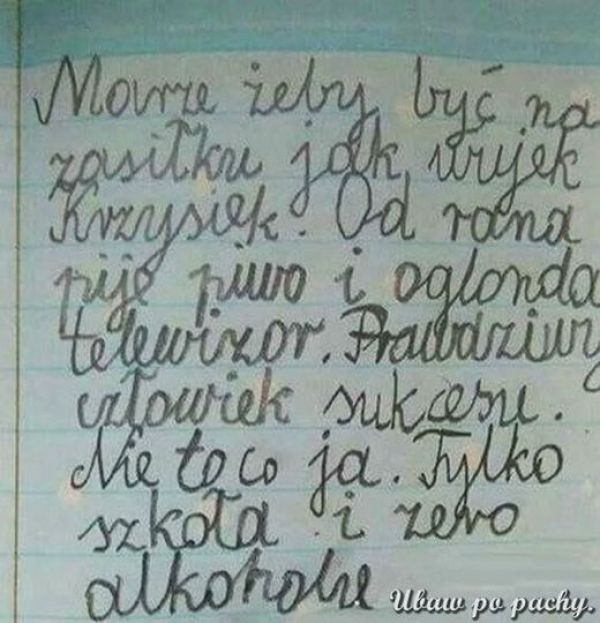 Marze żeby być na
zasiłku jak wujek
Krzysiek. Od rana
pije piwo i oglonda
telewizor. Prawdziwy
człowiek sukcesu.
Nie to co ja. Tylko
szkoła i zero
alkoholu
Ubaw po pachy.